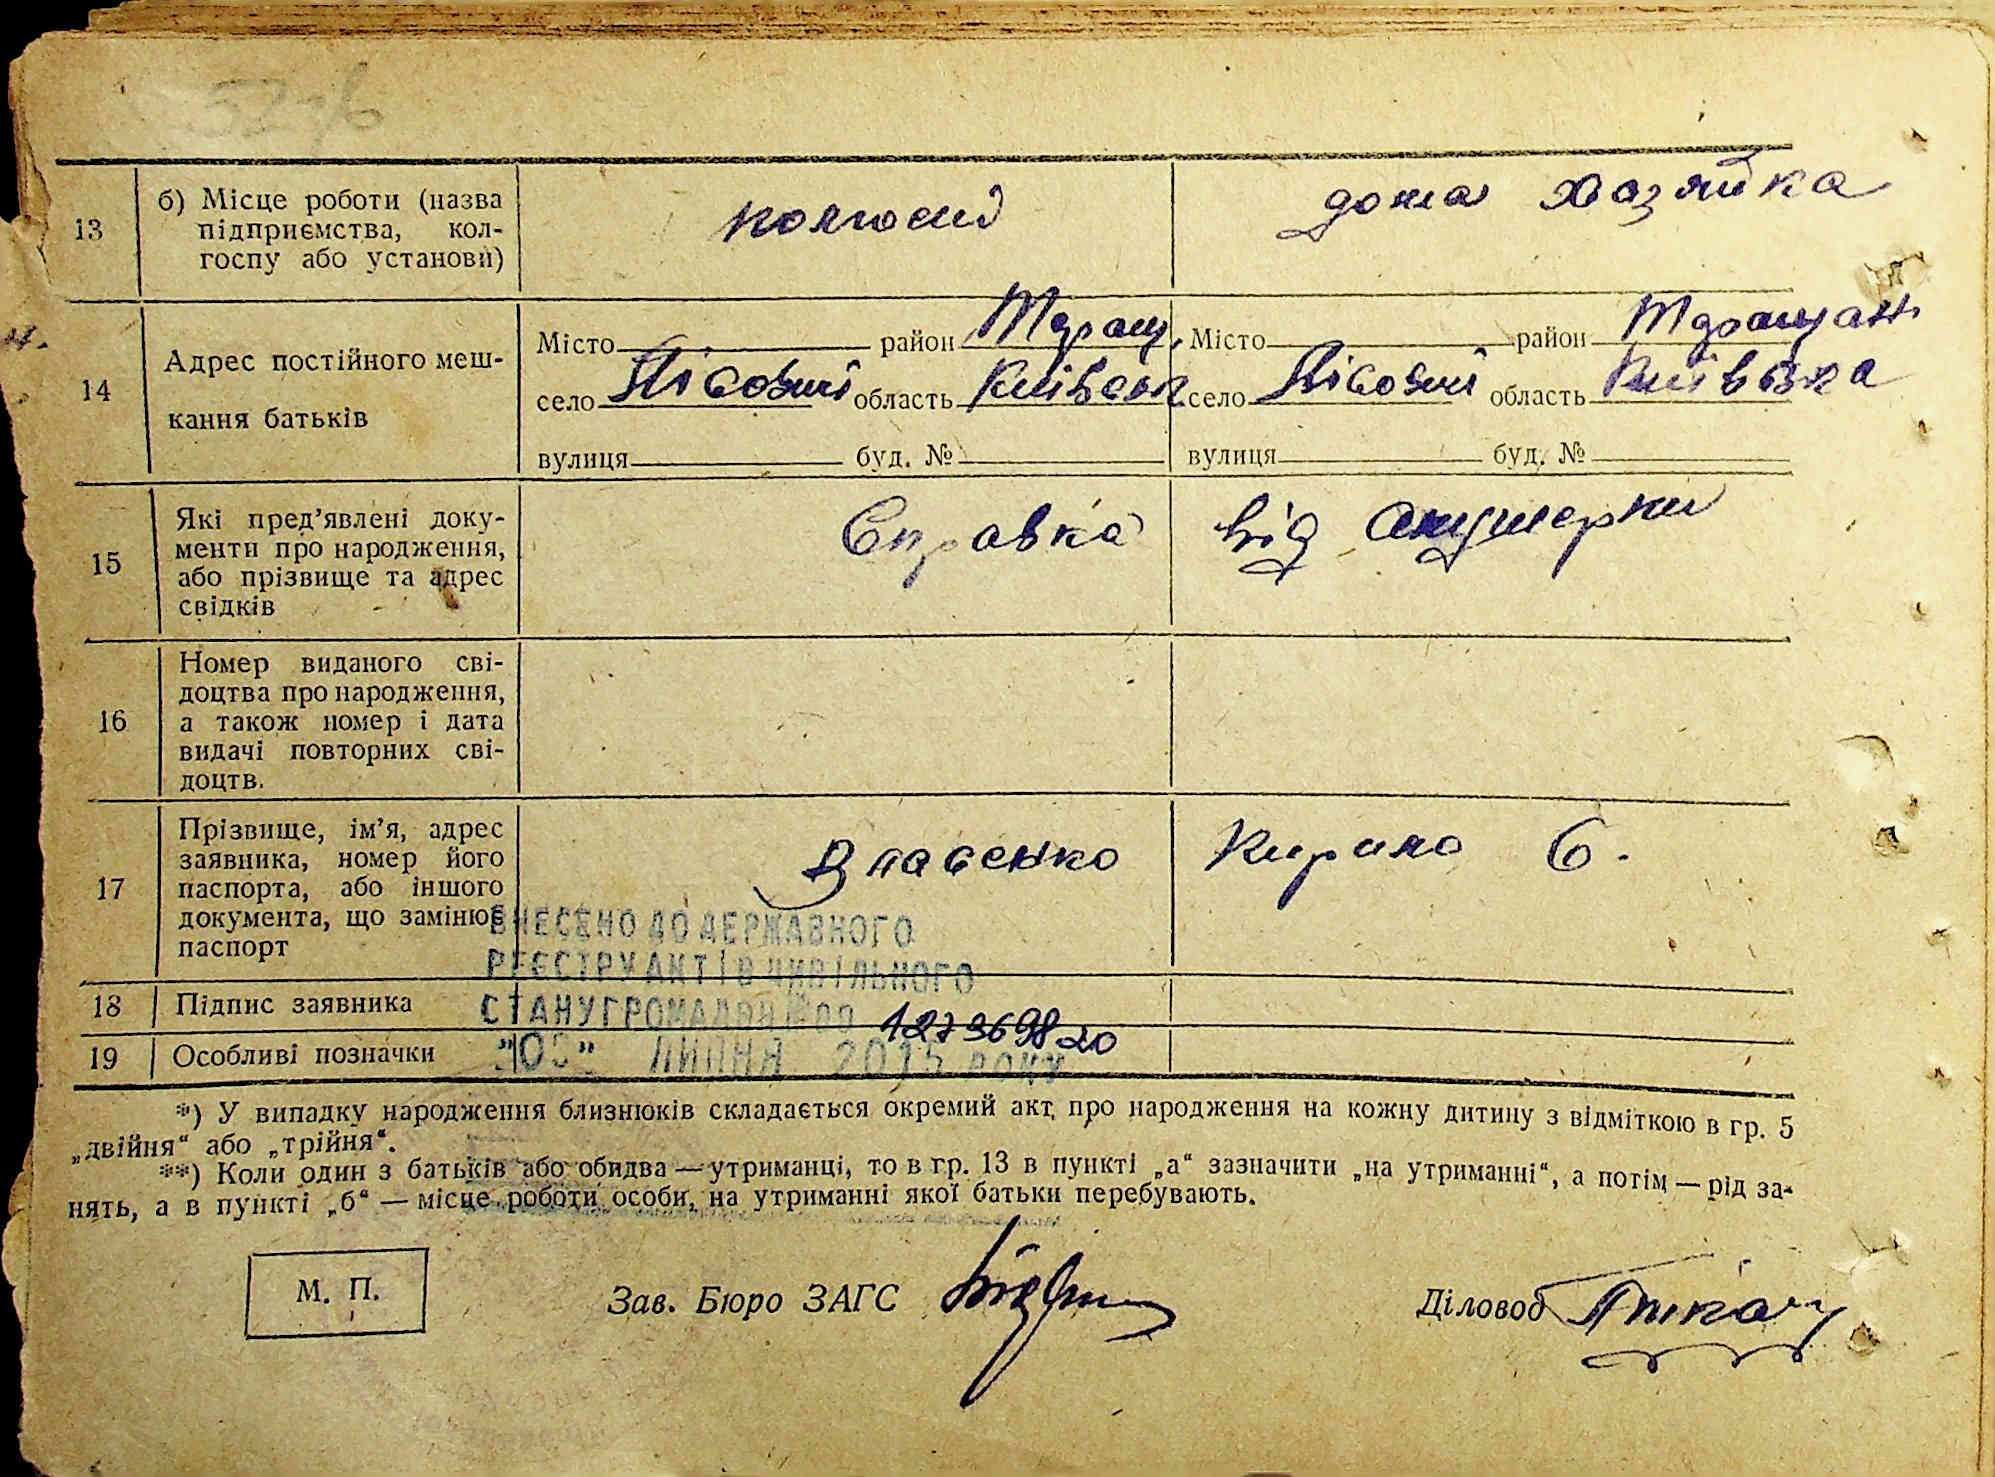 13 б) Місце роботи (назва підприємства, колгоспу або установи) колгосп дома хазяйка
14 Адрес постійного мешкання батьків
Місто район Таращ. Місто район Таращан.
село Лісовичі область Київськ село Лісовичі область Київська
вулиця буд. № вулиця буд. №
15 Які пред'явлені документи про народження, або прізвище та адрес свідків Справка від акушерки
16 Номер виданого свідоцтва про народження, а також номер і дата видачі повторних свідоцтв.
17 Прізвище, ім'я, адрес заявника, номер його паспорта, або іншого документа, що замінює паспорт Власенко Кирило Є.
ВНЕСЕНО ДО ДЕРЖАВНОГО
РЕЄСТРУ АКТІВ ЦИВІЛЬНОГО
18 Підпис заявника
СТАНУ ГРОМАДЯН №00 127369820
19 Особливі позначки
ЛИПНЯ 2015 РОКУ
*) У випадку народження близнюків складається окремий акт про народження на кожну дитину з відміткою в гр. 5
„двійня“ або „трійня“.
**) Коли один з батьків або обидва — утриманці, то в гр. 13 в пункті „а“ зазначити „на утриманні“, а потім — рід за-
нять, а в пункті „б“ — місце роботи особи, на утриманні якої батьки перебувають.
М. П. Зав. Бюро ЗАГС Діловод